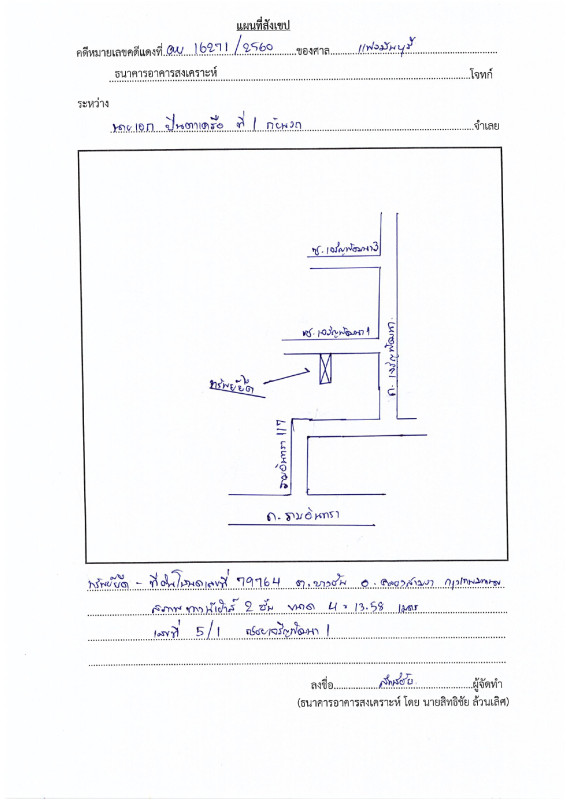 แผนที่สังเขป
คดีหมายเลขคดีแดงที่ ผบ 16271/2560 ของศาล แพ่งมีนบุรี
ธนาคารอาคารสงเคราะห์ โจทก์
ระหว่าง
นายเอก ปินตาเครือ ที่ 1 กับพวก จำเลย
ซ. เจริญพัฒนา 3
ซ. เจริญพัฒนา 1
ถ. เจริญพัฒนา
ทรัพย์ยึด
รามอินทรา 117
ถ. รามอินทรา
ทรัพย์ยึด - ที่ดินโฉนดเลขที่ 79764 ต. บางชัน อ. คลองสามวา กรุงเทพมหานคร
สภาพ ทาวน์เฮ้าส์ 2 ชั้น ขนาด 4 × 13.58 เมตร
เลขที่ 5/1 ซอยเจริญพัฒนา 1
ลงชื่อ สิทธิชัย ผู้จัดทำ
(ธนาคารอาคารสงเคราะห์ โดย นายสิทธิชัย ล้วนเลิศ)